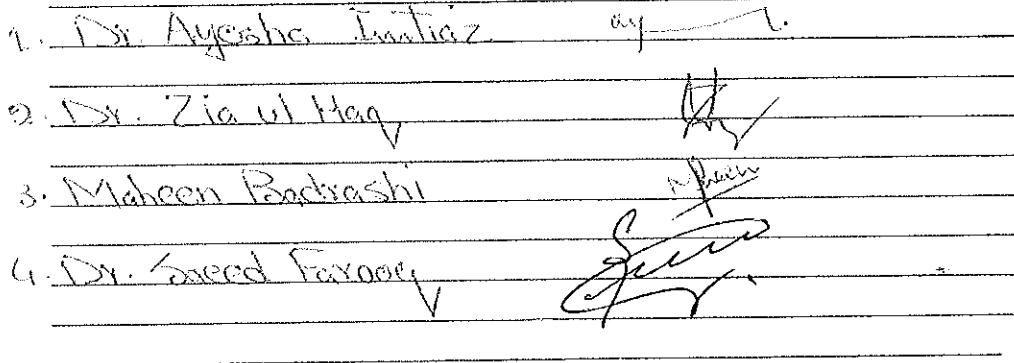 1. Dr. Ayesha Imtiaz
2. Dr. Zia ul Haq
3. Maheen Badrashi
4. Dr. Saeed Farooq